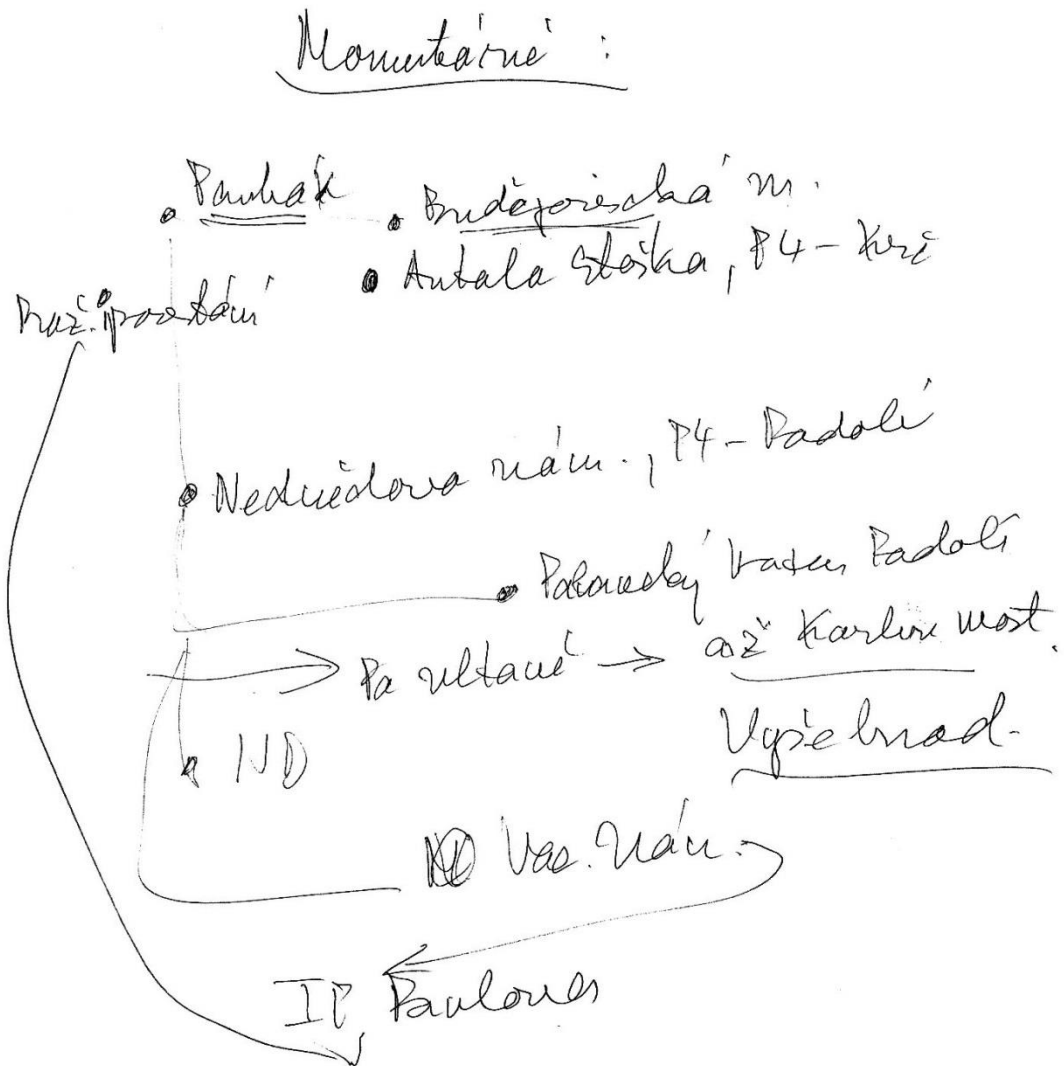 Momentárně :
Pankrác
Budějovická m.
Antala Staška, P4 - Krč
Nedvědovo nám., P4 - Podolí
Plavecký Podolí
Po vltavě → až Karlův most.
Vyšehrad.
ND
Vác. nám.
IP Pavlova